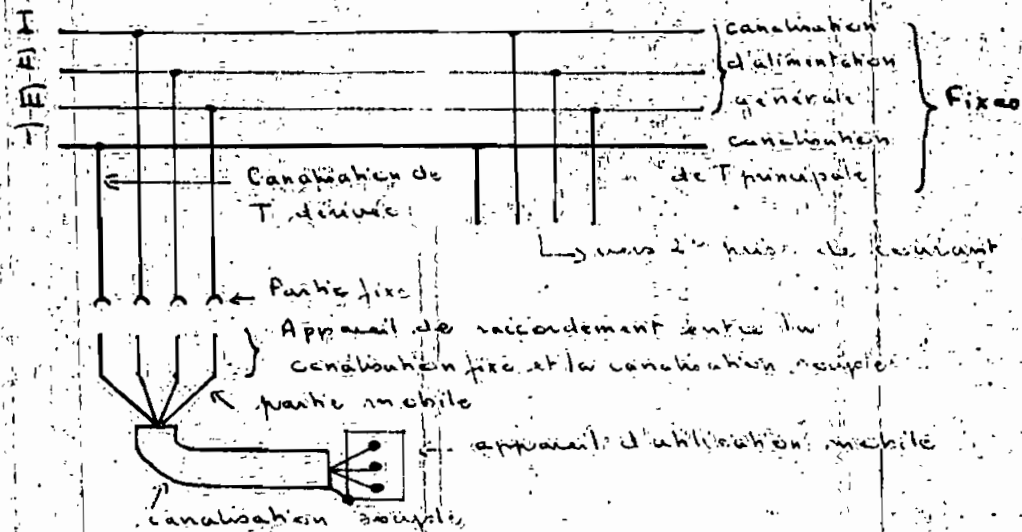 canalisation
d'alimentation
générale
Fixes
canalisation
de T principale
Canalisation de
T dérivée
vers 2e prise de courant
Partie fixe
Appareil de raccordement entre la
canalisation fixe et la canalisation souple
partie mobile
appareil d'utilisation mobile
canalisation souple